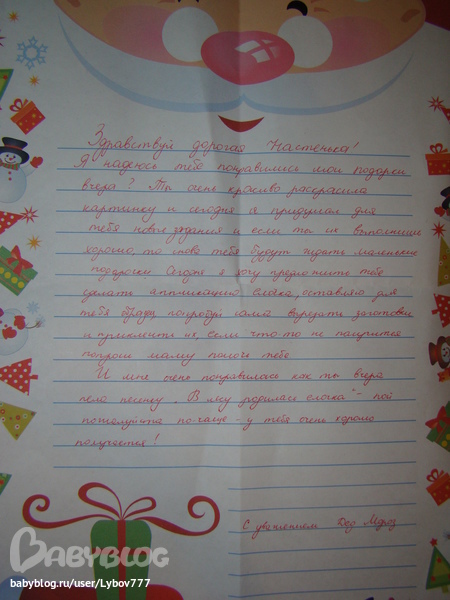 Здравствуй дорогая Настенька!
Я надеюсь тебе понравились мои подарки
вчера? Ты очень красиво раскрасила
картинку и сегодня я придумал для
тебя новые задания и если ты их выполнишь
хорошо, то снова тебя будут ждать маленькие
подарочки Сегодня я хочу предложить тебе
сделать аппликацию слоника, оставляю для
тебя образец попробуй сама вырезать заготовки
и приклеить их, если что то не получится
попроси маму помочь тебе.
И мне очень понравилось как ты вчера
пела песенку „В лесу родилась елочка" - пой
пожалуйста по-чаще - у тебя очень хорошо
получается!
С уважением Дед Мороз
BABYBLOG
babyblog.ru/user/Lybov777